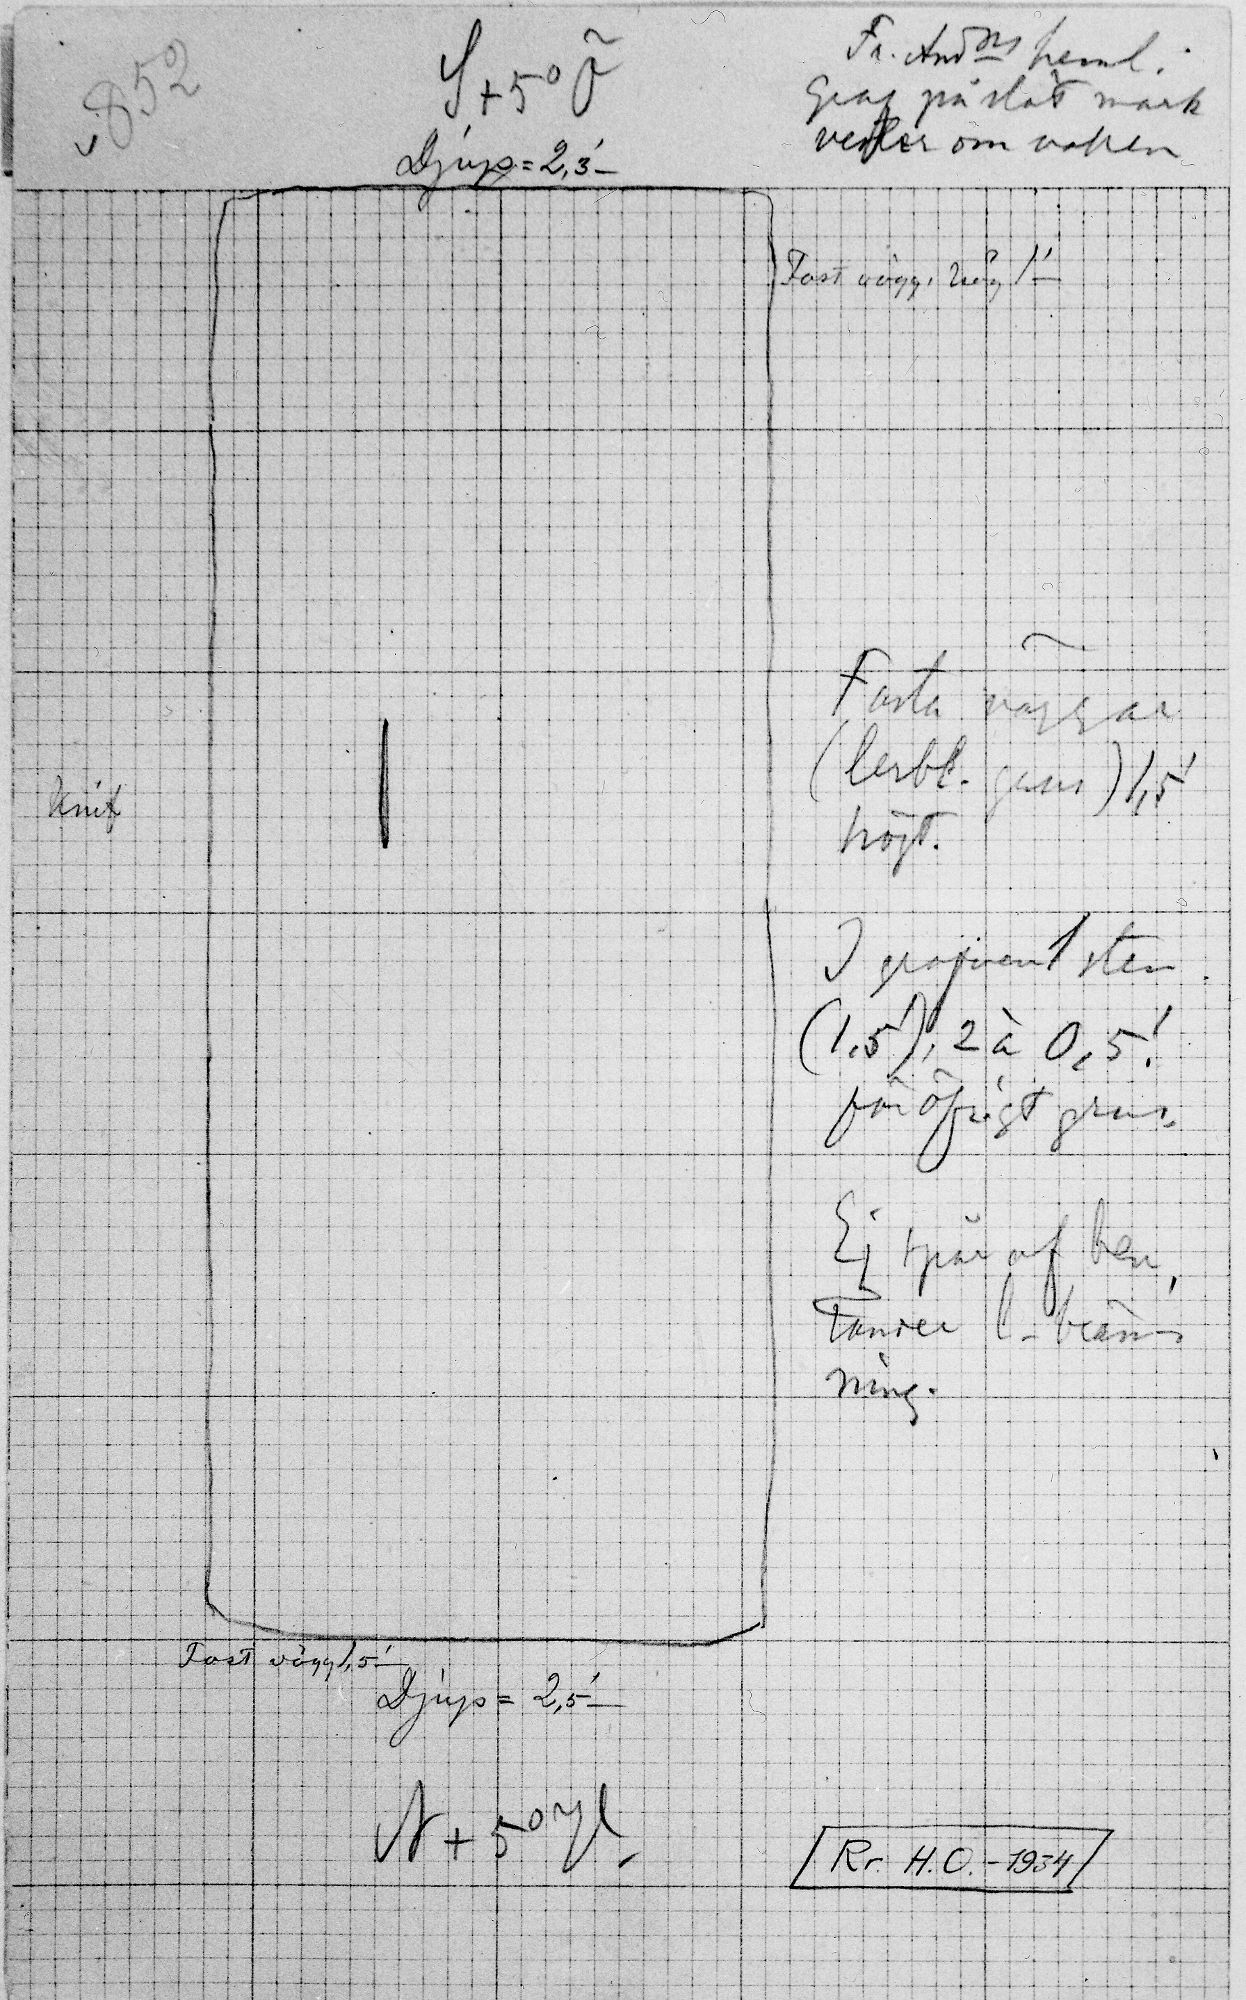 852
S+5°Ö
Djup = 2,3'
Fr. And^ns heml.
Graf på slät mark
vester om vaken
Fast vägg, hög 1'
Knif
Fasta väggar
(lerbl. grus) 1,5'
högt.
I grafven 1 sten
(1,5'), 2 à 0,5'.
för öfrigt grus.
Ej spår af ben,
tänder l. brän-
ning.
Fast vägg 1,5'
Djup = 2,5'
N+5°V.
Rr. H.O. - 1934